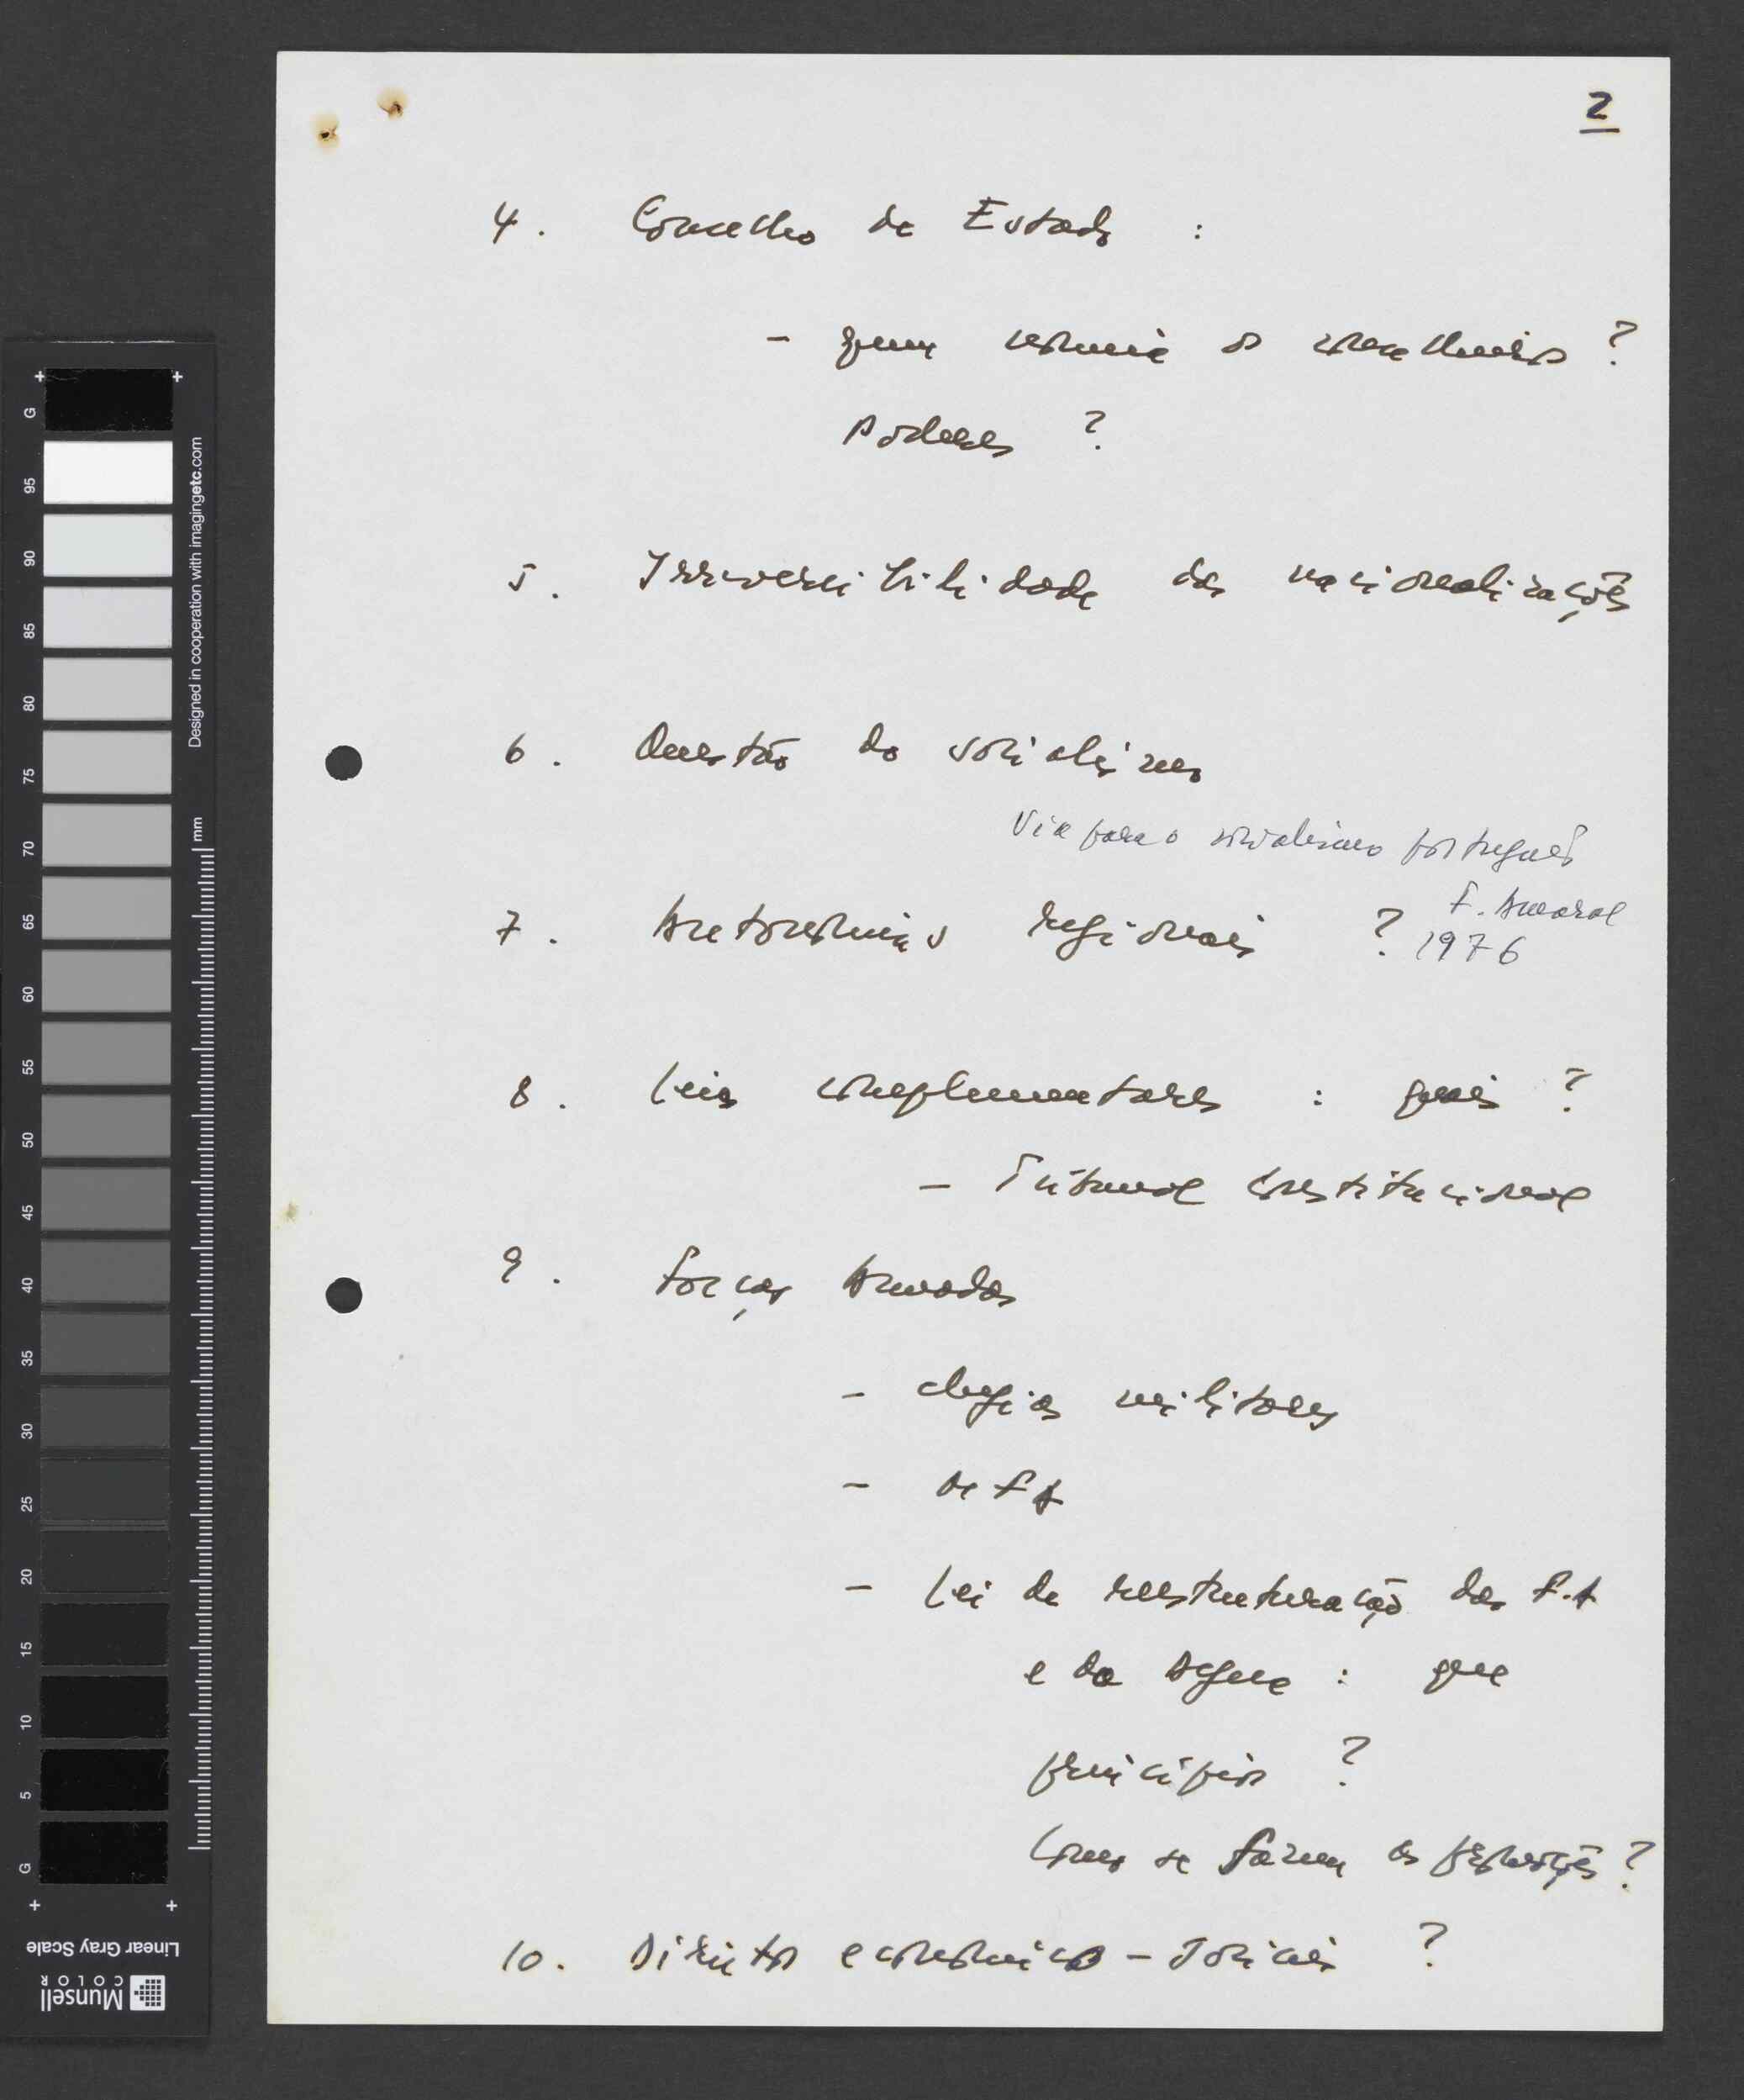 2
4. Conselho de Estado :
- quem nomeia os conselheiros ?
Poderes ?
5. Irreversibilidade das nacionalizações
6. Questão do socialismo
Via para o socialismo português
F. Amaral
7. Autonomias regionais ? 1976
8. Leis complementares : quais ?
- Tribunal Constitucional
9. Forças Armadas
- chefias militares
- 
- Lei de reestruturação das F.A
e da : que
princípios ?
Como se fazem as promoções ?
10. Direitos económicos - sociais ?
+ +
G 95 90 85 80 75 70 65 60 55 50 45 40 35 30 25 20 15 10 5 G
Designed in cooperation with imagingetc.com
mm
+ +
Linear Gray Scale
Munsell
COLOR